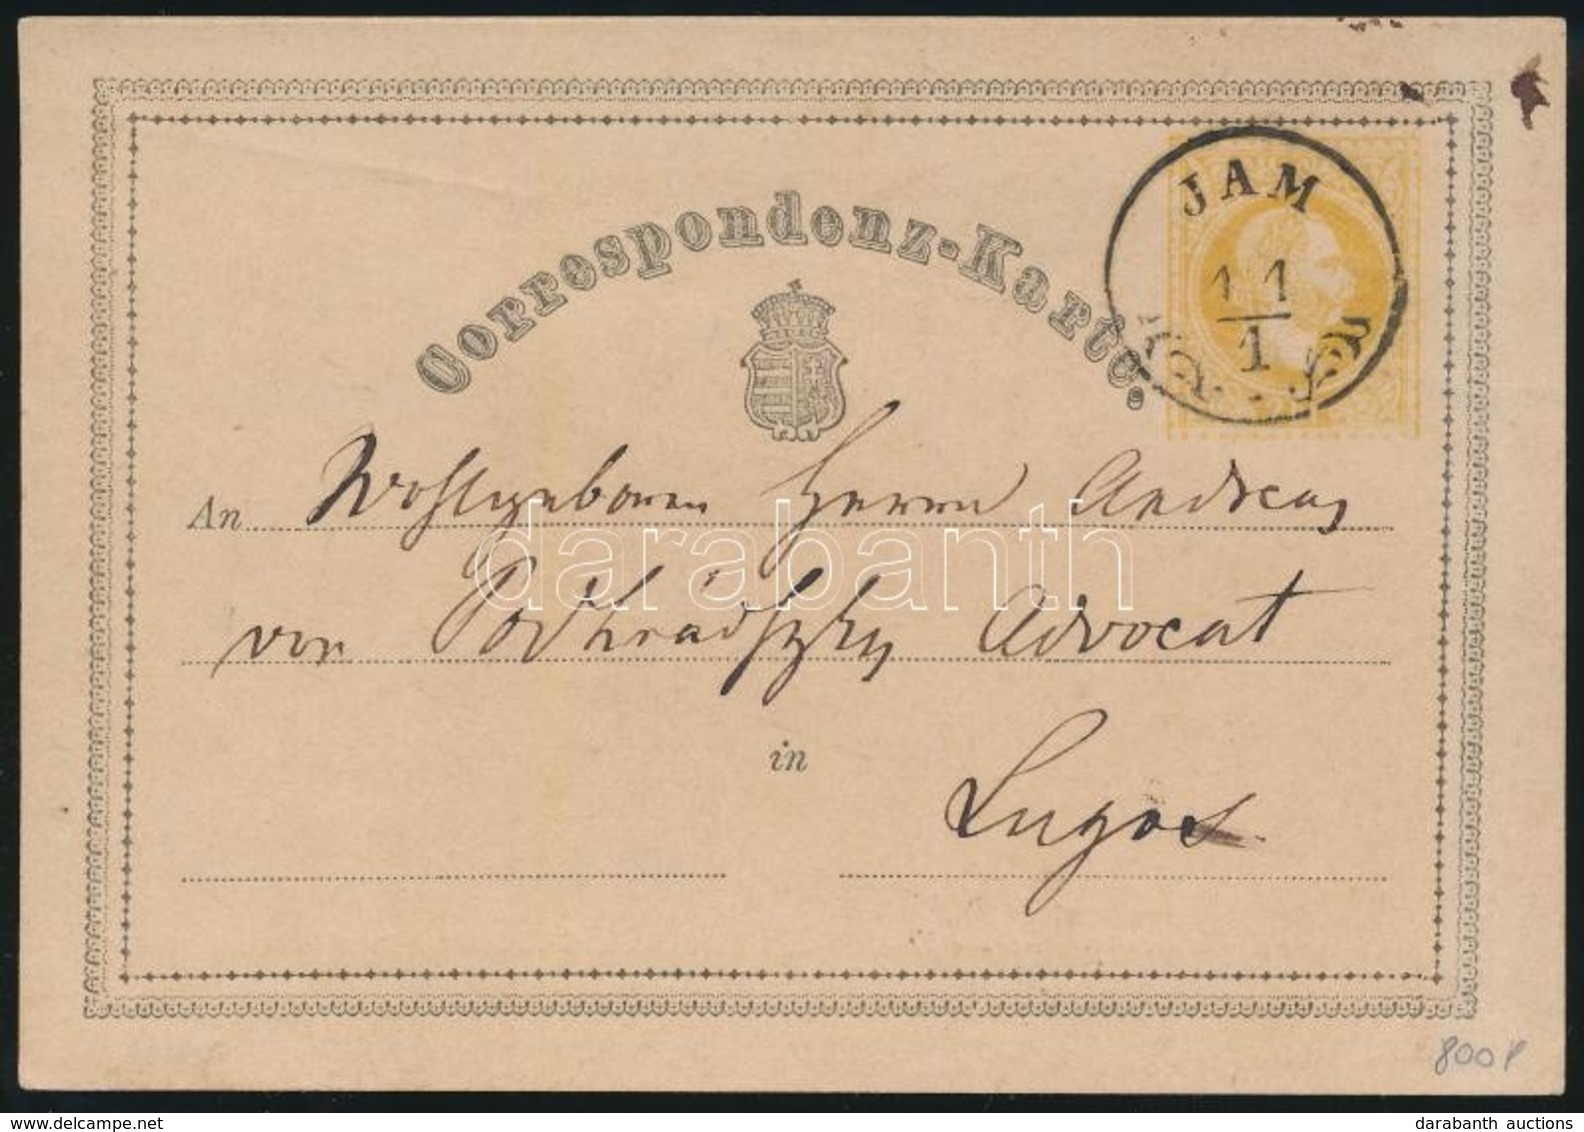 JAM
11
1
Correspondenz-Karte.
An Wohlgeboren Herrn Andreas
darabanth
von Podhrádszky Advocat
in Lugos
800 P
www.delcampe.net
darabanth auctions